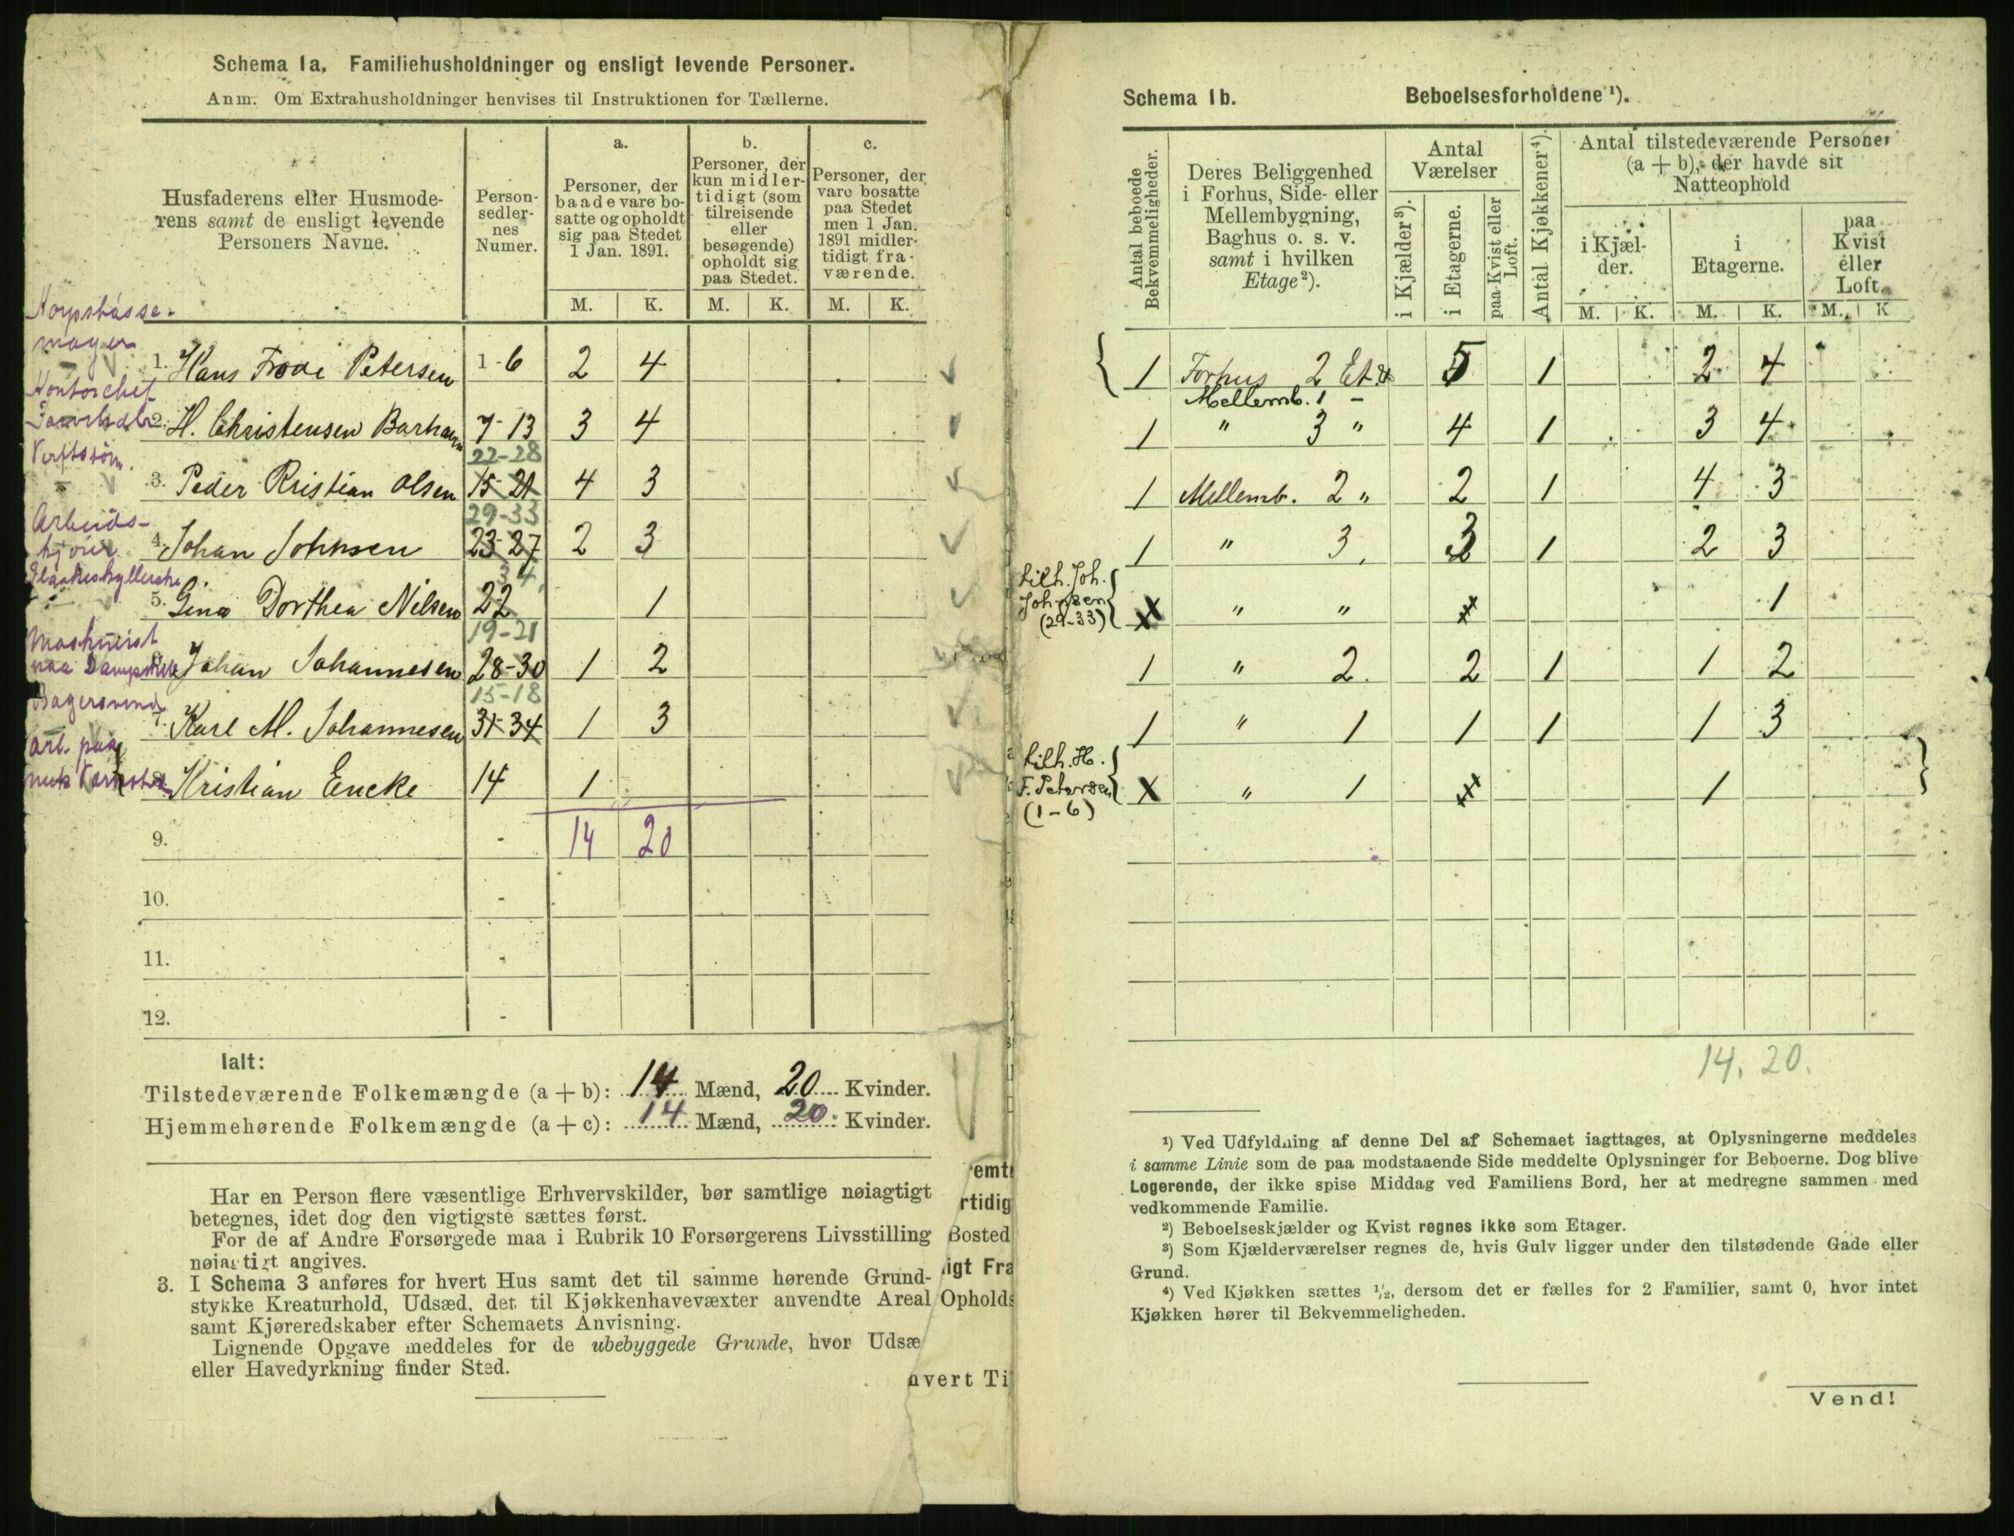 Schema 1a. Familiehusholdninger og ensligt levende Personer.
Anm. Om Extrahusholdninger henvises til Instruktionen for Tællerne.
Husfaderens eller Husmoderens samt de ensligt levende Personers Navne.
Personsedlernes Numer.
a. Personer, der baade vare bosatte og opholdt sig paa Stedet 1 Jan. 1891.
b. Personer, der kun midlertidigt (som tilreisende eller besøgende) opholdt sig paa Stedet.
c. Personer, der vare bosatte paa Stedet men 1 Jan. 1891 midlertidigt fraværende.
M. K. M. K. M. K.
1. Hans Frode Petersen 1-6 2 4
Kontorchef
2. H. Christensen Barham 7-13 3 4
22-28
3. Peder Kristian Olsen 15-21 4 3
29-33
4. Johan Johnsen 23-27 2 3
34
5. Gina Dorthea Nilsen 22 1
19-21
Johan Johannesen 28-30 1 2
Bagersvend 15-18
7. Karl M. Johannesen 31-34 1 3
Arb. paa
8. Kristian Encke 14 1
9. - 14 20
10. -
11. -
12. -
Ialt:
Tilstedeværende Folkemængde (a + b): 14 Mænd, 20 Kvinder.
Hjemmehørende Folkemængde (a + c): 14 Mænd, 20 Kvinder.
Har en Person flere væsentlige Erhvervskilder, bør samtlige nøiagtigt
betegnes, idet dog den vigtigste sættes først.
For de af Andre Forsørgede maa i Rubrik 10 Forsørgerens Livsstilling
nøiagtigt angives.
3. I Schema 3 anføres for hvert Hus samt det til samme hørende Grund-
stykke Kreaturhold, Udsæd, det til Kjøkkenhavevæxter anvendte Areal
samt Kjøreredskaber efter Schemaets Anvisning.
Lignende Opgave meddeles for de ubebyggede Grunde, hvor Udsæ
eller Havedyrkning finder Sted.
emt
rtidig
Bosted
igt Fra
Opholds
hvert Ti
Schema 1b. Beboelsesforholdene ¹).
Antal beboede Bekvemmeligheder.
Deres Beliggenhed i Forhus, Side- eller Mellembygning, Baghus o. s. v. samt i hvilken Etage ²).
Antal Værelser
i Kjælder ³).
i Etagerne.
paa Kvist eller Loft.
Antal Kjøkkener ⁴).
Antal tilstedeværende Personer (a + b), der havde sit Natteophold
i Kjælder.
i Etagerne.
paa Kvist eller Loft.
M. K. M. K. M. K
1 Forhus 2 Et. 5 1 2 4
Mellemb. 1 -
1 " 3 " 4 1 3 4
1 Mellemb. 2 " 2 1 4 3
1 " 3. 3 1 2 3
tilh. Joh. Johnsen (29-33) X " " x 1
1 " 2. 2 1 1 2
1 " 1 1 1 1 3
tilh. H. F. Petersen (1-6) X " 1 xx 1
14. 20.
¹) Ved Udfyldning af denne Del af Schemaet iagttages, at Oplysningerne meddeles
i samme Linie som de paa modstaaende Side meddelte Oplysninger for Beboerne. Dog blive
Logerende, der ikke spise Middag ved Familiens Bord, her at medregne sammen med
vedkommende Familie.
²) Beboelseskjælder og Kvist regnes ikke som Etager.
³) Som Kjælderværelser regnes de, hvis Gulv ligger under den tilstødende Gade eller
Grund.
⁴) Ved Kjøkken sættes ¹/₂, dersom det er fælles for 2 Familier, samt 0, hvor intet
Kjøkken hører til Bekvemmeligheden.
Vend!